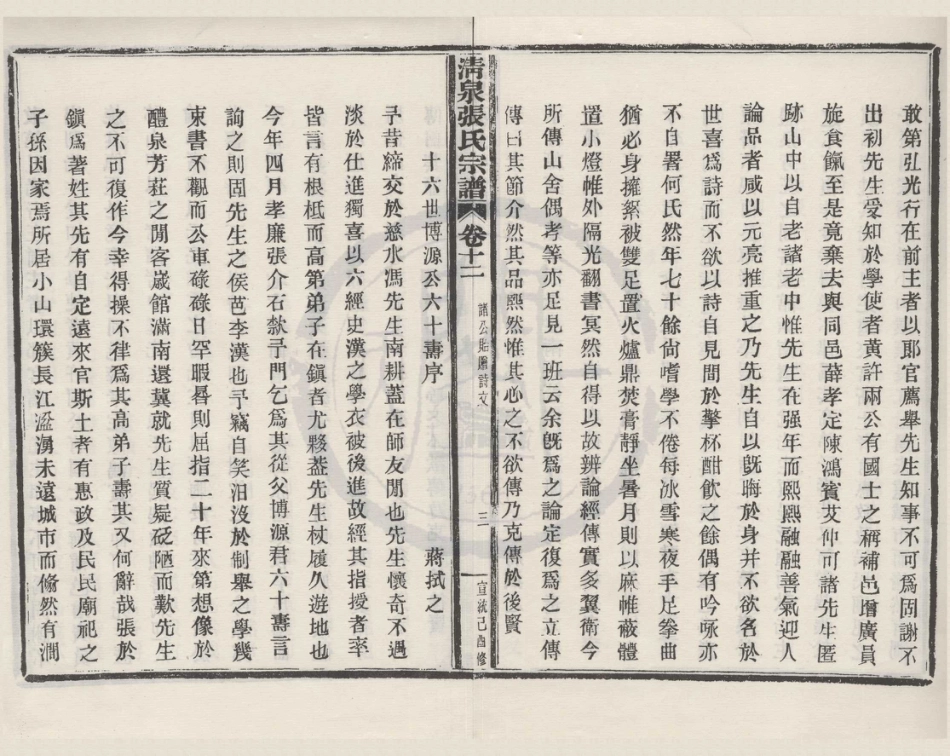 敢第弘光行在前主者以郎官薦舉先生知事不可爲固謝不
出初先生受知於學使者黃許兩公有國士之稱補邑增廣員
旋食餼至是竟棄去與同邑薛孝定陳鴻賓艾仲可諸先生匿
跡山中以自老諸老中惟先生在强年而熙熙融融善氣迎人
論品者咸以元亮推重之乃先生自以旣晦於身并不欲名於
世喜爲詩而不欲以詩自見間於擎杯酣飲之餘偶有吟咏亦
不自署何氏然年七十餘尙嗜學不倦每冰雪寒夜手足拳曲
猶必身擁絮被雙足置火爐鼎焚膏靜坐暑月則以麻帷蔽體
置小燈帷外隔光翻書冥然自得以故辨論經傳實多翼衛今
所傳山舍偶考等亦足見一班云余旣爲之論定復爲之立傳
傳曰其節介然其品熙然惟其心之不欲傳乃克傳於後賢
清泉張氏宗譜
卷十二
諸公贈屬詩文
三
宣統己酉修
十六世博源公六十壽序
蔣拭之
予昔締交於慈水馮先生南耕蓋在師友閒也先生懷奇不遇
淡於仕進獨喜以六經史漢之學衣被後進故經其指授者率
皆言有根柢而高第弟子在鎮者尤夥蓋先生杖履久遊地也
今年四月孝廉張介石欵予門乞爲其從父博源君六十壽言
詢之則固先生之侯芭李漢也予竊自笑汩沒於制舉之學幾
束書不觀而公車碌碌日罕暇晷則屈指二十年來第想像於
醴泉芳菘之閒客歲館滿南還冀就先生質疑砭陋而歎先生
之不可復作今幸得操不律爲其高弟子壽其又何辭哉張於
鎮爲著姓其先有自定遠來官斯土者有惠政及民民廟祀之
子孫因家焉所居小山環簇長江滋湧未遠城市而翛然有澗